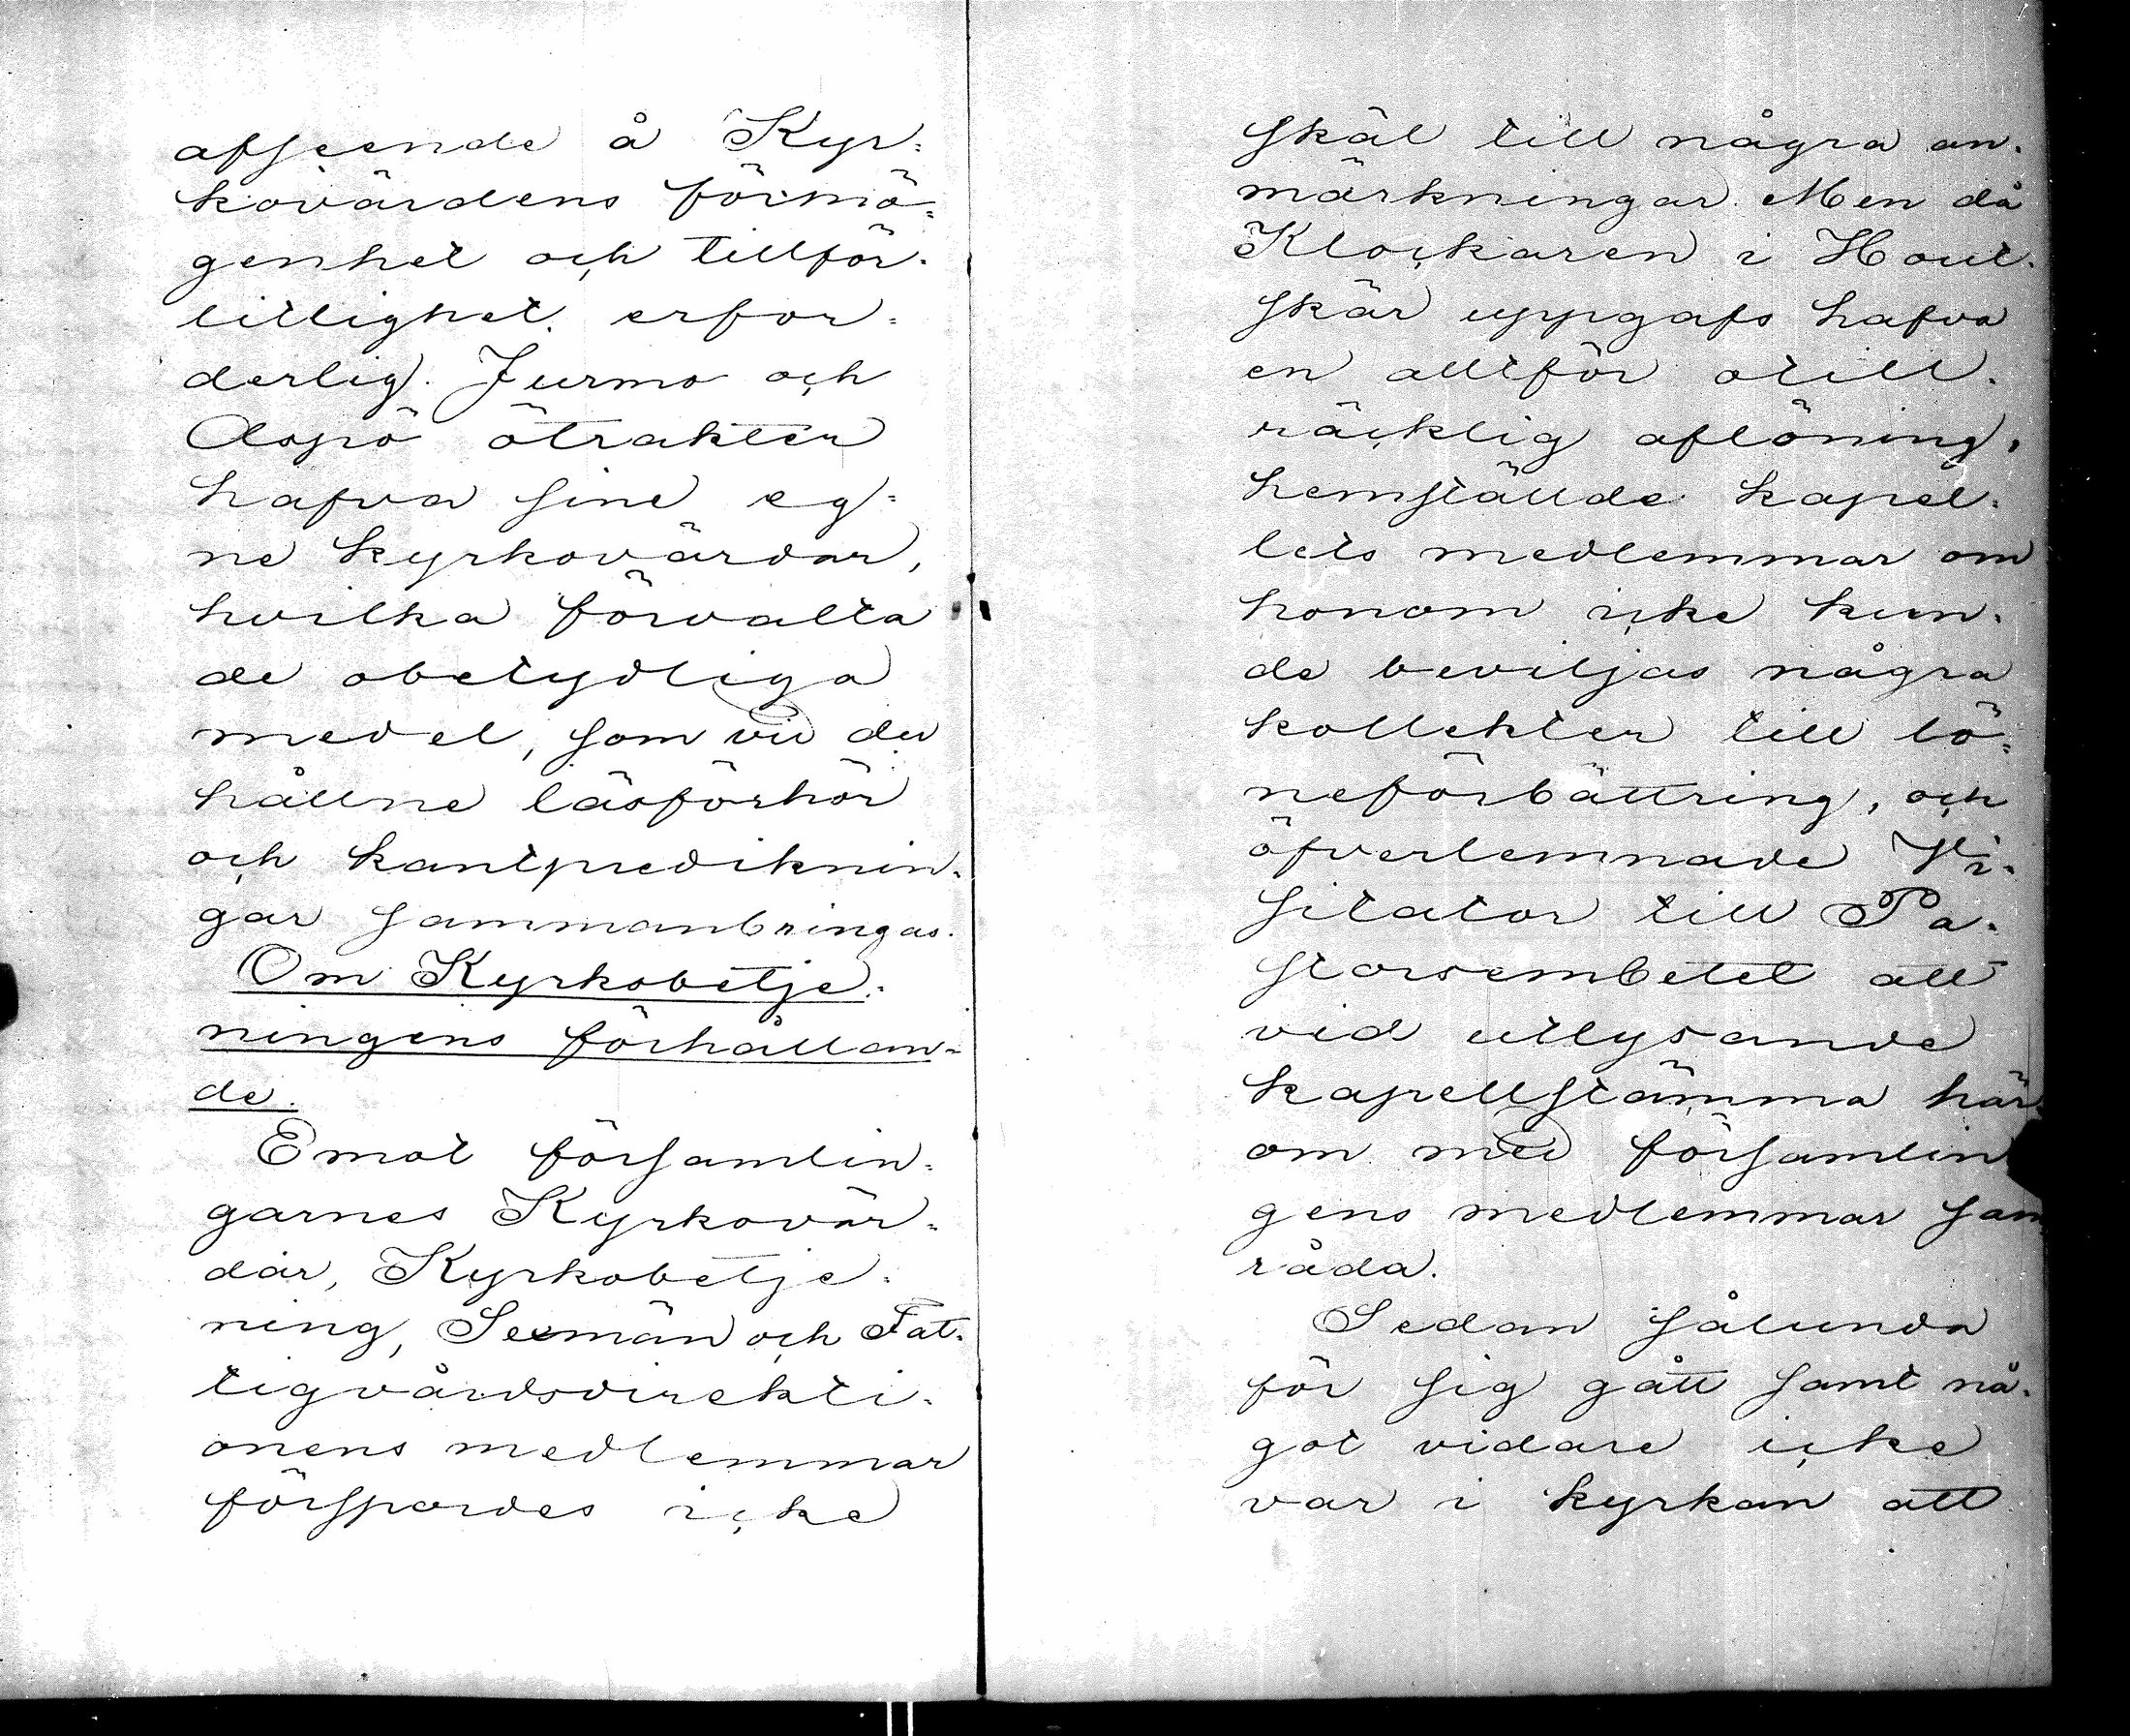 afseende å Kyr-
kovärdens förmö-
genhet och tillför-
litlighet erfor-
derlig. Jurmo och
Aspö ötrakter
hafva sine eg-
ne kyrkovärdar,
hvilka förvalta
de obetydliga
medel, som vid der
hållne läsförhör
och kantprediknin-
gar sammanbringas.
Om Kyrkobetje-
ningens förhållan-
de.
Emot församlin-
garnes Kyrkovär-
dar, Kyrkobetje-
ning, Sexmän och Fat-
tigvårdsdirekti-
onens medlemmar
förspordes icke
skäl till några an-
märkningar. Men då
Klockaren i Hout-
skär uppgafs hafva
en alltför otill-
räcklig aflöning,
hemställde kapel-
lets medlemmar om
honom icke kun-
de beviljas några
kollekter till lö-
neförbättring, och
öfverlemnade Vi-
sitator till Pa-
storsembetet att
vid utlysande
kapellstämma här
om med församlin
gens medlemmar sam
råda.
Sedan sålunda
för sig gått samt nå-
got vidare icke
var i kyrkan att